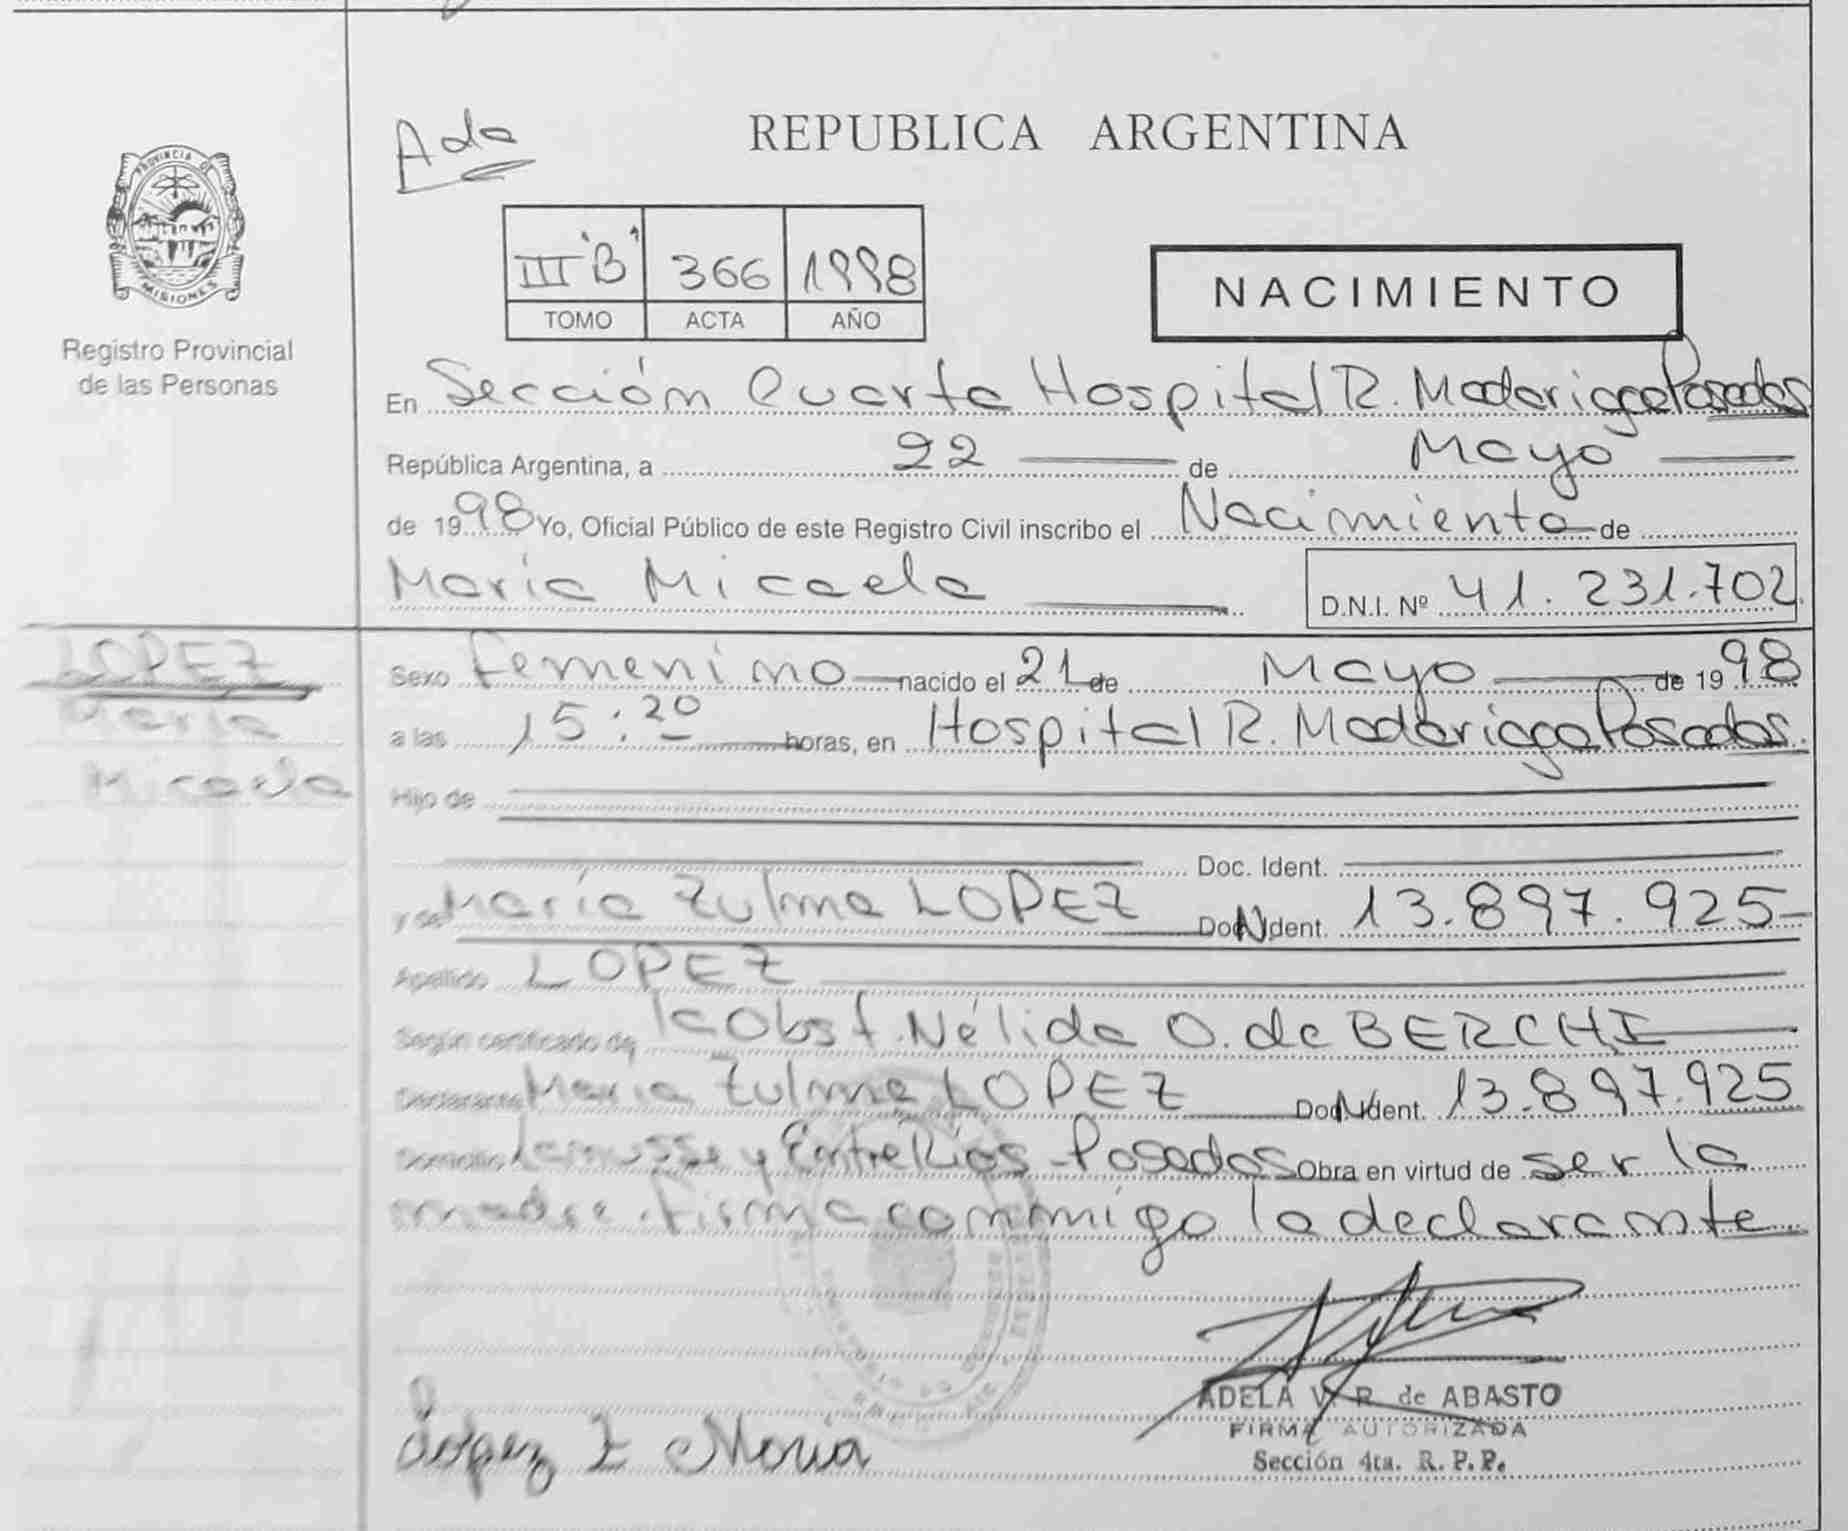 Ada
REPUBLICA ARGENTINA
PROVINCIA DE
MISIONES
Registro Provincial
de las Personas
III "B" 366 1998
TOMO ACTA AÑO
NACIMIENTO
En Sección Cuarta Hospital R. Madariaga Posadas
República Argentina, a 22 de Mayo
de 1998 Yo, Oficial Público de este Registro Civil inscribo el Nacimiento de
María Micaela D.N.I. Nº 41.231.702
LOPEZ
María
Micaela
Sexo Femenino nacido el 21 de Mayo de 1998
a las 15:20 horas, en Hospital R. Madariaga Posadas.
Hijo de
Doc. Ident.
y de María Zulma LOPEZ Doc. Ident. N 13.897.925
Apellido LOPEZ
Según certificado de la Obst. Nélida O. de BERCHI
Declarante María Zulma LOPEZ Doc. Ident. N 13.897.925
Domicilio Lanusse y Entre Ríos - Posadas Obra en virtud de ser la
madre. firma conmigo la declarante
Lopez Z Maria
ADELA V. R. de ABASTO
FIRMA AUTORIZADA
Sección 4ta. R. P. P.